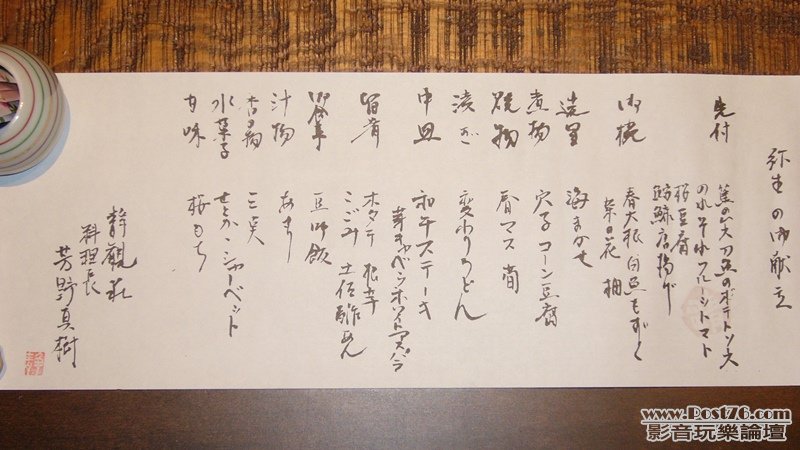 弥生の御献立
先付
筍の
のれそれフルーツトマト
桜豆腐
御椀
鮟鱇唐揚げ
春大根
菜の花 柚
造里
海まかせ
煮物
穴子コーン豆腐
焼物
春マス 筍
凌ぎ
変わりうどん
中皿
和牛ステーキ
芽キャベツ ホワイトアスパラ
留肴
ホタテ
こごみ 土佐酢あん
御食事
豆御飯
汁物
あさり
香の物
三点
水菓子
せとか・シャーベット
甘味
桜もち
静観荘
料理長
芳野真樹
www.Post76.com
影音玩樂論壇